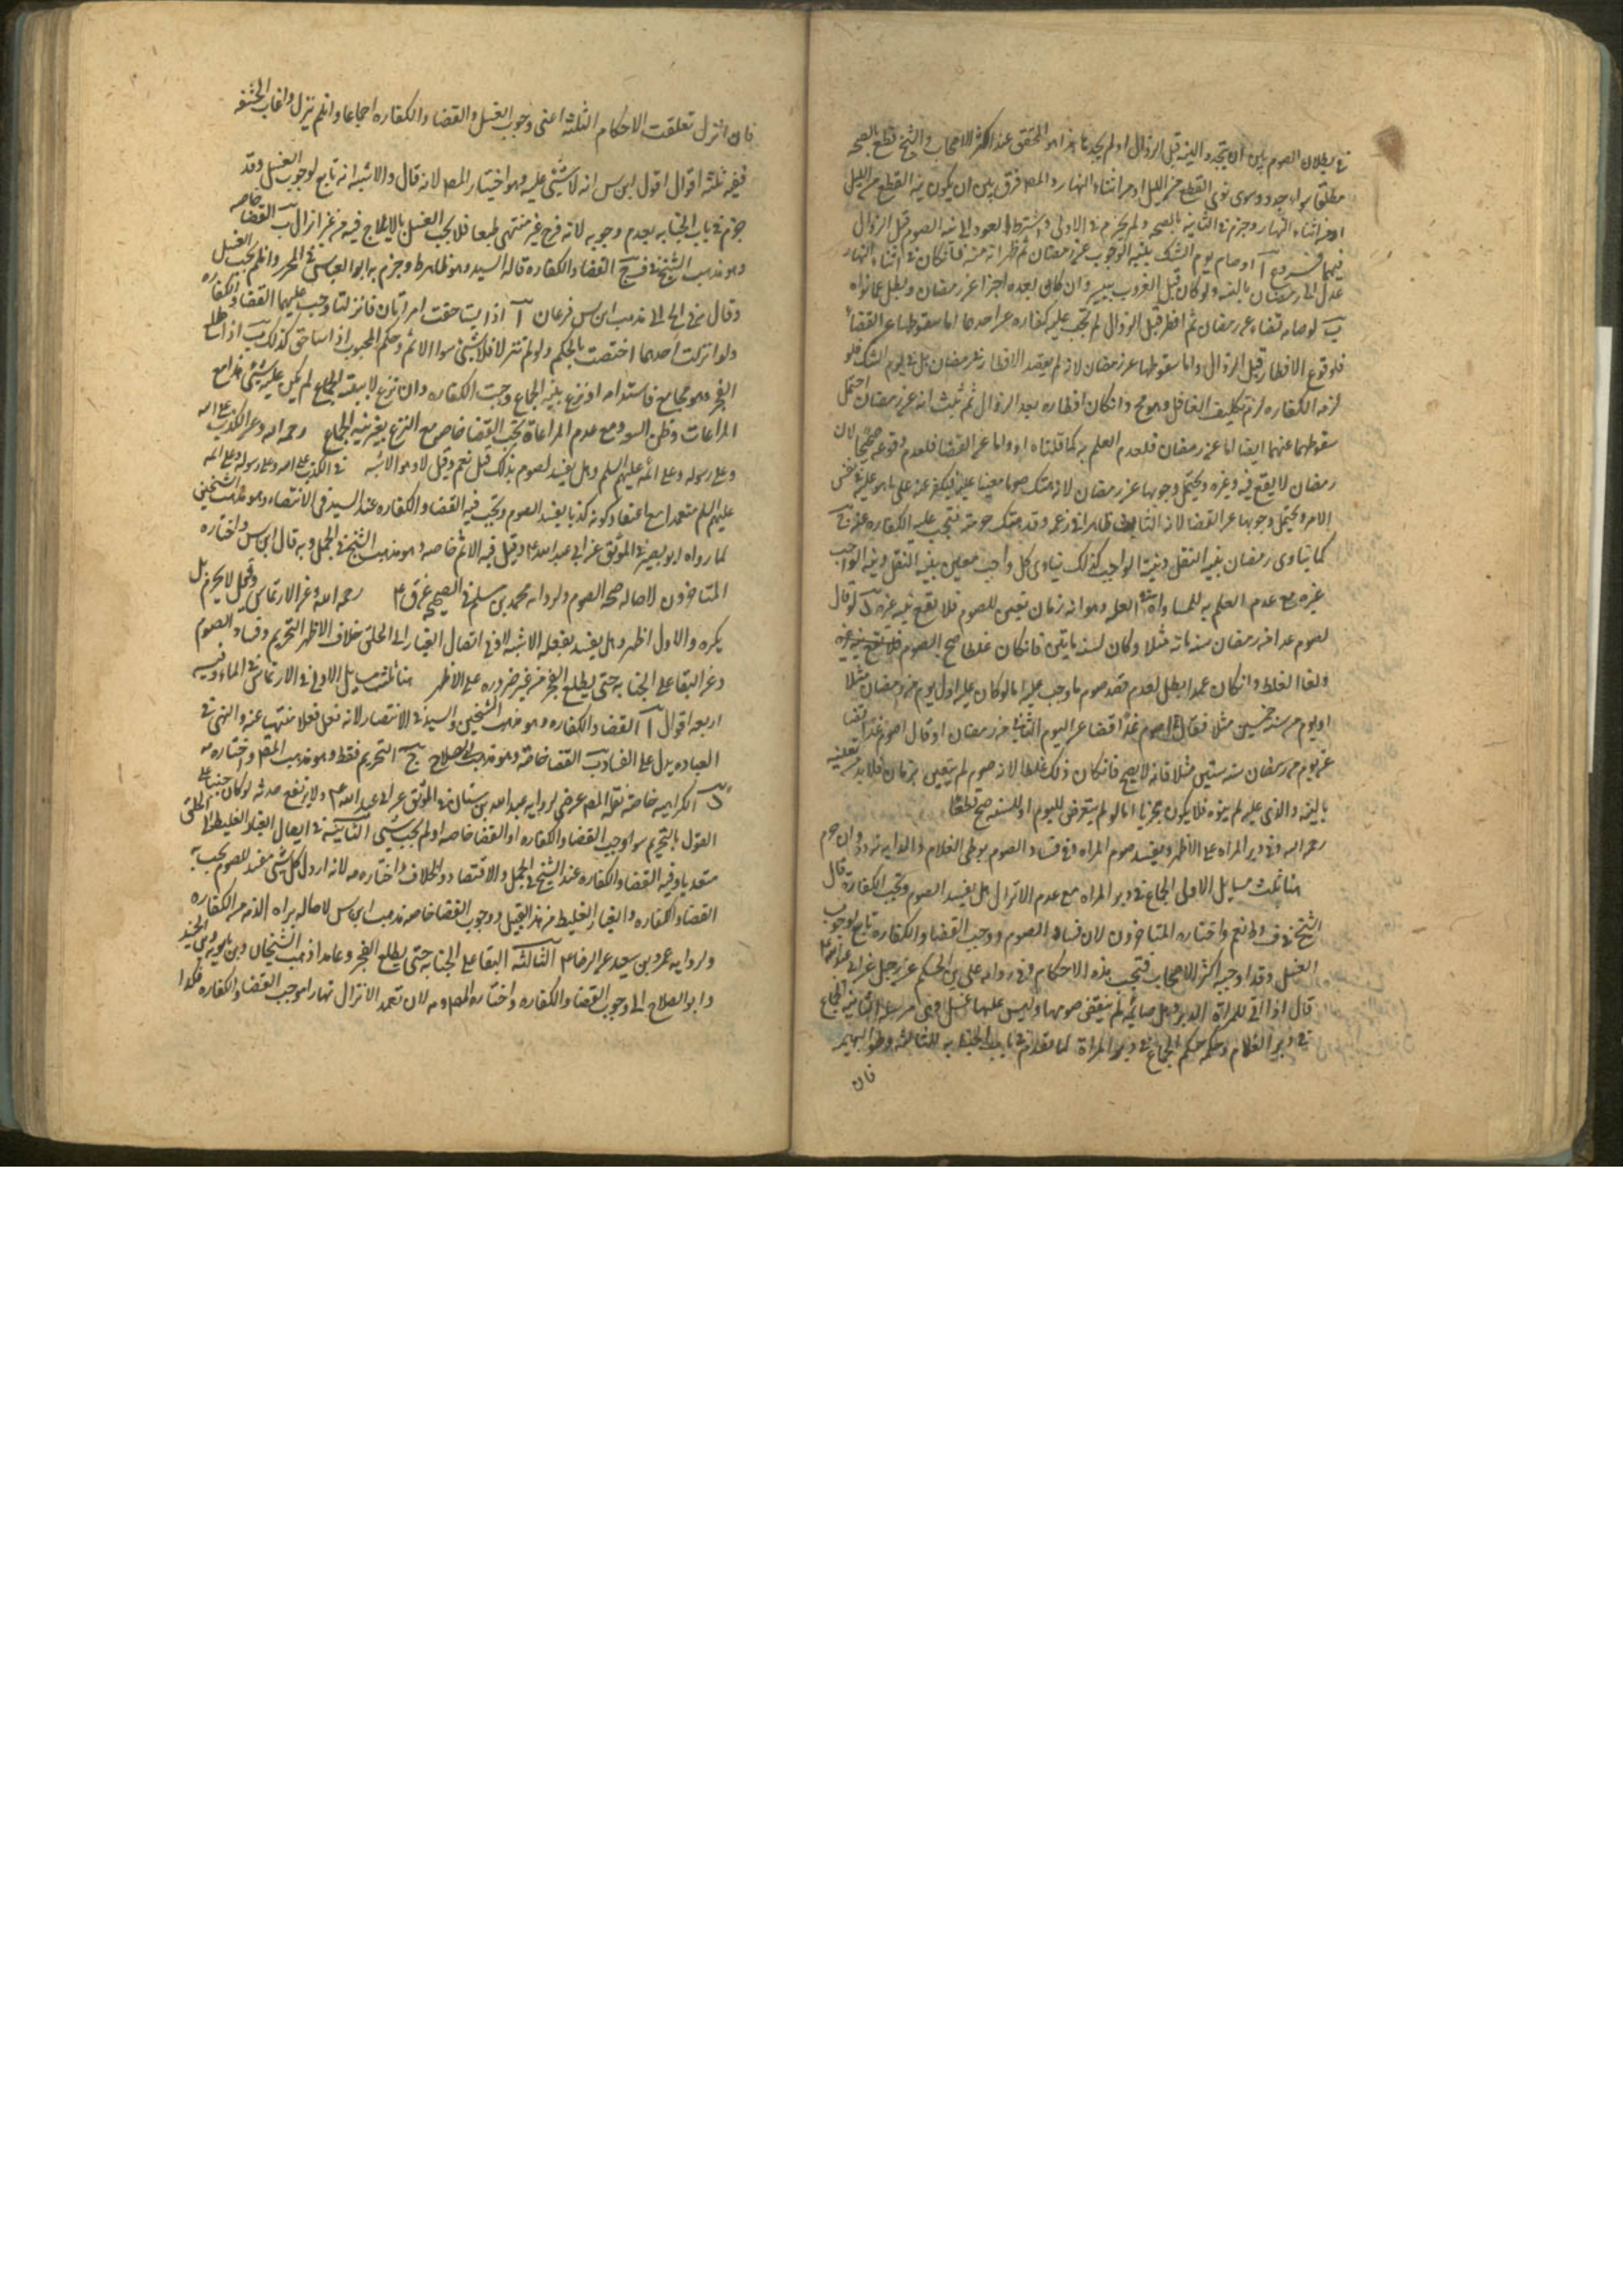 في بطلان الصوم بين ان يتجدد النية قبل الزوال او لم يجددها هذا هو المحقق عند اكثر الاصحاب والشيخ قطع بالصحه
مطلقا سواء جدد وسوى نوى القطع من الليل او من اثناء النهار والمص فرق بين ان يكون نية القطع من الليل
او من اثناء النهار وجزم في الثانية بالصحه ولم يجزم في الاولى واشترط العود الى نية الصوم قبل الزوال
فيهما فروع آ لو صام يوم الشك بنية الوجوب عن رمضان ثم ظهر انه منه فان كان في اثناء النهار
عدل الى رمضان بالنية ولو كان قبل الغروب بيسير وان كان بعده اجزا عن رمضان وبطل عما نواه
ب لو صام قضاء عن رمضان ثم افطر قبل الزوال لم تجب عليه كفاره عن احدهما اما سقوطها عن القضاء
فلوقوع الافطار قبل الزوال واما سقوطها عن رمضان لانه لم يقصد الافطار من رمضان بل في يوم الشك فلو
لزمه الكفاره لزم تكليف الغافل وهو مح وان كان افطاره بعد الزوال ثم ثبت انه من رمضان احتمل
سقوطها عنهما ايضا اما عن رمضان فلعدم العلم به كما قلناه اولا واما عن القضا فلعدم وقوعه صحيحا لان
رمضان لا يقع فيه غيره ويحتمل وجوبها عن رمضان لانه هتك صوما معينا عليه فيكفر عنه على ما هو عليه في نفس
الامر ويحتمل وجوبها عن القضا لانه الثابت ظاهرا في زعمه وقد هتك حرمته فتجب عليه الكفاره عنه ج
كما يتادى رمضان بنية النفل ونية الواجب كذلك يتادى كل واجب معين بنية النفل ونية الواجب
غيره مع عدم العلم به للمساواة في العله وهو انه زمان تعين للصوم فلا يقع فيه غيره د لو قال
اصوم غدا من رمضان سنة مائة مثلا وكان لسنة مايتين فان كان غلطا صح الصوم
ولغا الغلط وان كان عمدا بطل لعدم قصد صوم ما وجب عليه اما لو كان عليه اول يوم من رمضان مثلا
او يوم من سنة خمسين مثلا فقال اصوم غدا قضا عن اليوم الثاني من رمضان او قال اصوم غدا قضا
عن يوم من رمضان سنة ستين مثلا فانه لا يصح فان كان ذلك غلطا لانه صوم لم يتعين بزمان فلا بد من تعيينه
بالنيه والذي عليه لم ينوه فلا يكون مجزيا اما لو لم يتعرض لليوم او للسنه صح قطعا
رحمه الله وفي دبر المراه على الاظهر ويفسد صوم المراه وفي فساد الصوم بوطي الغلام والدابه تردد وان حرم
هنا ثلث مسايل الاولى الجماع في دبر المراه مع عدم الانزال هل يفسد الصوم وتجب الكفارة قال
الشيخ في ف و ط نعم واختاره المتاخرون لان فساد الصوم ووجوب القضا والكفاره تابع لوجوب
الغسل وقد اوجبه اكثر الاصحاب فتجب هذه الاحكام وفي روايه علي بن الحكم عن رجل عن ابي عبدالله ع
قال اذا اتى للمراة الدبر وهي صائمة لم ينقض صومها وليس عليها غسل وهي مرسله الثانيه الجماع
في دبر الغلام وحكمه حكم الجماع في دبر المراة لما تقدم في باب الجنابه الثالثه وطو البهيمه
فان
فان انزل تعلقت الاحكام الثلثه اعني وجوب الغسل والقضا والكفاره اجماعا وان لم ينزل وغاب الحشفه
ففيه ثلثه اقوال اقول ابن س انه لا شيء عليه وهو اختيار المص لانه قال والاشبه انه تابع لوجوب الغسل وقد
جزم في باب الجنابه بعدم وجوبه لانه فرج غير مشتهى طبعا فلا يجب الغسل بالايلاج فيه من غير انزال ب القضا خاصه
وهو مذهب الشيخ في ف ج القضا والكفاره قاله السيد وهو ظاهر ط وجزم به ابو العباس في المحرر وان لم يجب الغسل
وقال في الحاله مذهب ابن س فرعان آ اذا تساحقت امراتان فانزلتا وجب عليهما القضا والكفاره
ولو انزلت احدهما اختصت بالحكم ولو لم تنزلا فلا شيء سوا الاثم وحكم المجبوب اذا ساحق كذلك ب اذا طلع
الفجر وهو مجامع فاستدام او نزع بنية الجماع وجبت الكفاره وان نزع لا بنية الجماع لم يكن عليه شيء هذا مع
المراعات وظن السعه ومع عدم المراعاة تجب القضا خاصه مع النزع بغير نية الجماع رحمه الله وعن الكذب على الله
وعلى رسوله وعلى ائمه عليهم السلم وهل يفسد الصوم بذلك قيل نعم وقيل لا وهو الاشبه في الكذب على الله وعلى رسوله وعلى ائمه
عليهم السلم متعمدا مع اعتقاد كونه كذبا يفسد الصوم وتجب فيه القضا والكفاره عند السيد في الانتصار وهو مذهب الشيخين
لما رواه ابو بصير في الموثق عن ابي عبدالله ع وقيل فيه الاثم خاصه وهو مذهب الشيخ في الجمل وبه قال ابن س واختاره
المتاخرون لاصاله صحه الصوم ولروايه محمد بن مسلم في الصحيح عن ق ع رحمه الله وعن الارتماس وقيل لا يحرم بل
يكره والاول اظهر وهل يفسد بفعله الاشبه لا وفي ايصال الغبار الى الحلق خلاف الاظهر التحريم وفساد الصوم
وعن البقا على الجنابه حتى يطلع الفجر من غير ضروره على الاظهر هنا ثلث مسايل الاولى في الارتماس في الماء وفيه
اربعه اقوال آ القضا والكفاره وهو مذهب الشيخين والسيد في الانتصار لانه فعل فعلا منتهيا عنه والنهي في
العباده يدل على الفساد ب القضا خاصة وهو مذهب ابي الصلاح ج التحريم فقط وهو مذهب المص واختاره
د الكراهيه خاصة نقله المص عن ضي لروايه عبدالله بن سنان في الموثق عن ابي عبدالله ع ولا يرتفع حدثه لو كان جنبا على
القول بالتحريم سوا وجب القضا والكفاره او القضا خاصه او لم يجب شيء الثانية في ايصال الغبار الغليظ الى الحلق
متعديا وفيه القضا والكفاره عند الشيخ في الجمل والاقتصاد والخلاف واختاره لانه كل شيء مفسد للصوم يجب به
القضا والكفاره والغبار الغليظ من هذا القبيل ووجوب القضا خاصه مذهب ابن س لاصاله براه الذمه من الكفاره
ولروايه عمرو بن سعيد عن الرضا ع الثالثه البقا على الجنابه حتى يطلع الفجر وعامدا ذهب الشيخان وبن بابويه وابن الجنيد
وابو الصلاح الى وجوب القضا والكفاره واختاره المص لان تعمد الانزال نهارا موجب القضا والكفاره فكذا